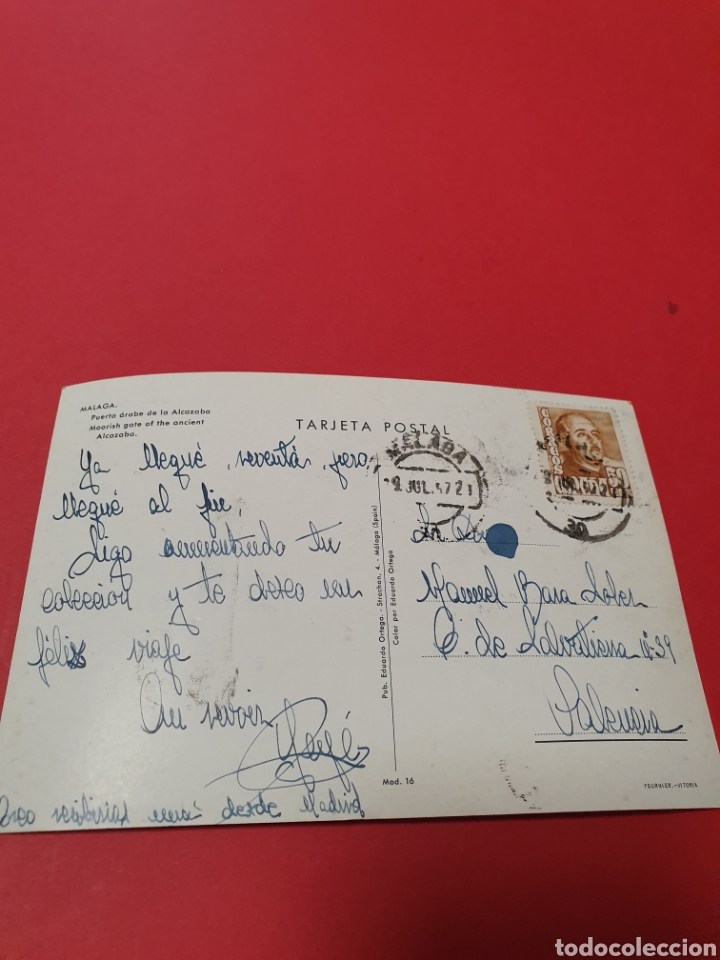 MALAGA.
Puerta árabe de la Alcazaba
Moorish gate of the ancient
Alcazaba.
TARJETA POSTAL
CORREOS
50
MALAGA
9 JUL. 57 21
30
30
Ya llegué, reventá, pero
llegué al fin.
Sigo aumentando tu
colección y te deseo un
féliz viaje
Au revoir
Creo recibirias una desde Madrid
Sr. Don
Manuel Bara
C. de Salvatierra 39
Valencia
Pub. Eduardo Ortega. - Strachan, 4. - Málaga (Spain)
Color por Eduardo Ortega
Mod. 16
FOURNIER.-VITORIA
todocoleccion